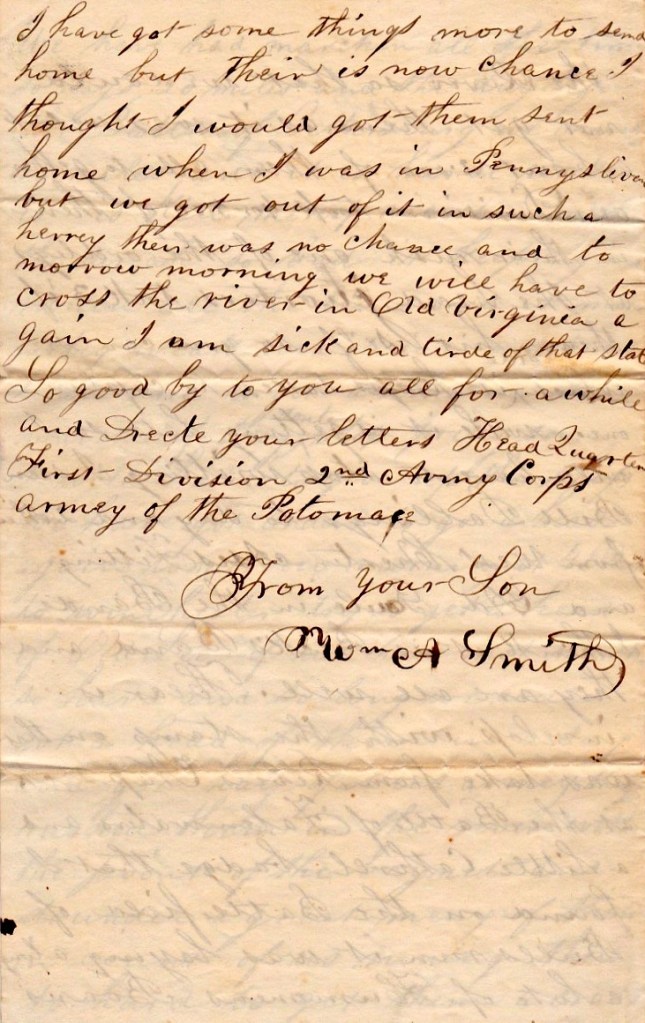 I have got some things more to send
home but their is now chance I
thought I would got them sent
home when I was in Pennyslivan
but we got out of it in such a
herrey their was no chance and to
morrow morning we will have to
cross the river in Old Virginia a
gain I am sick and tirde of that stat
So good by to you all for awhile
and Drecte your letters Head Quarters
First Division 2nd Army Corps
armey of the Potomac
From your Son
Wm A Smith